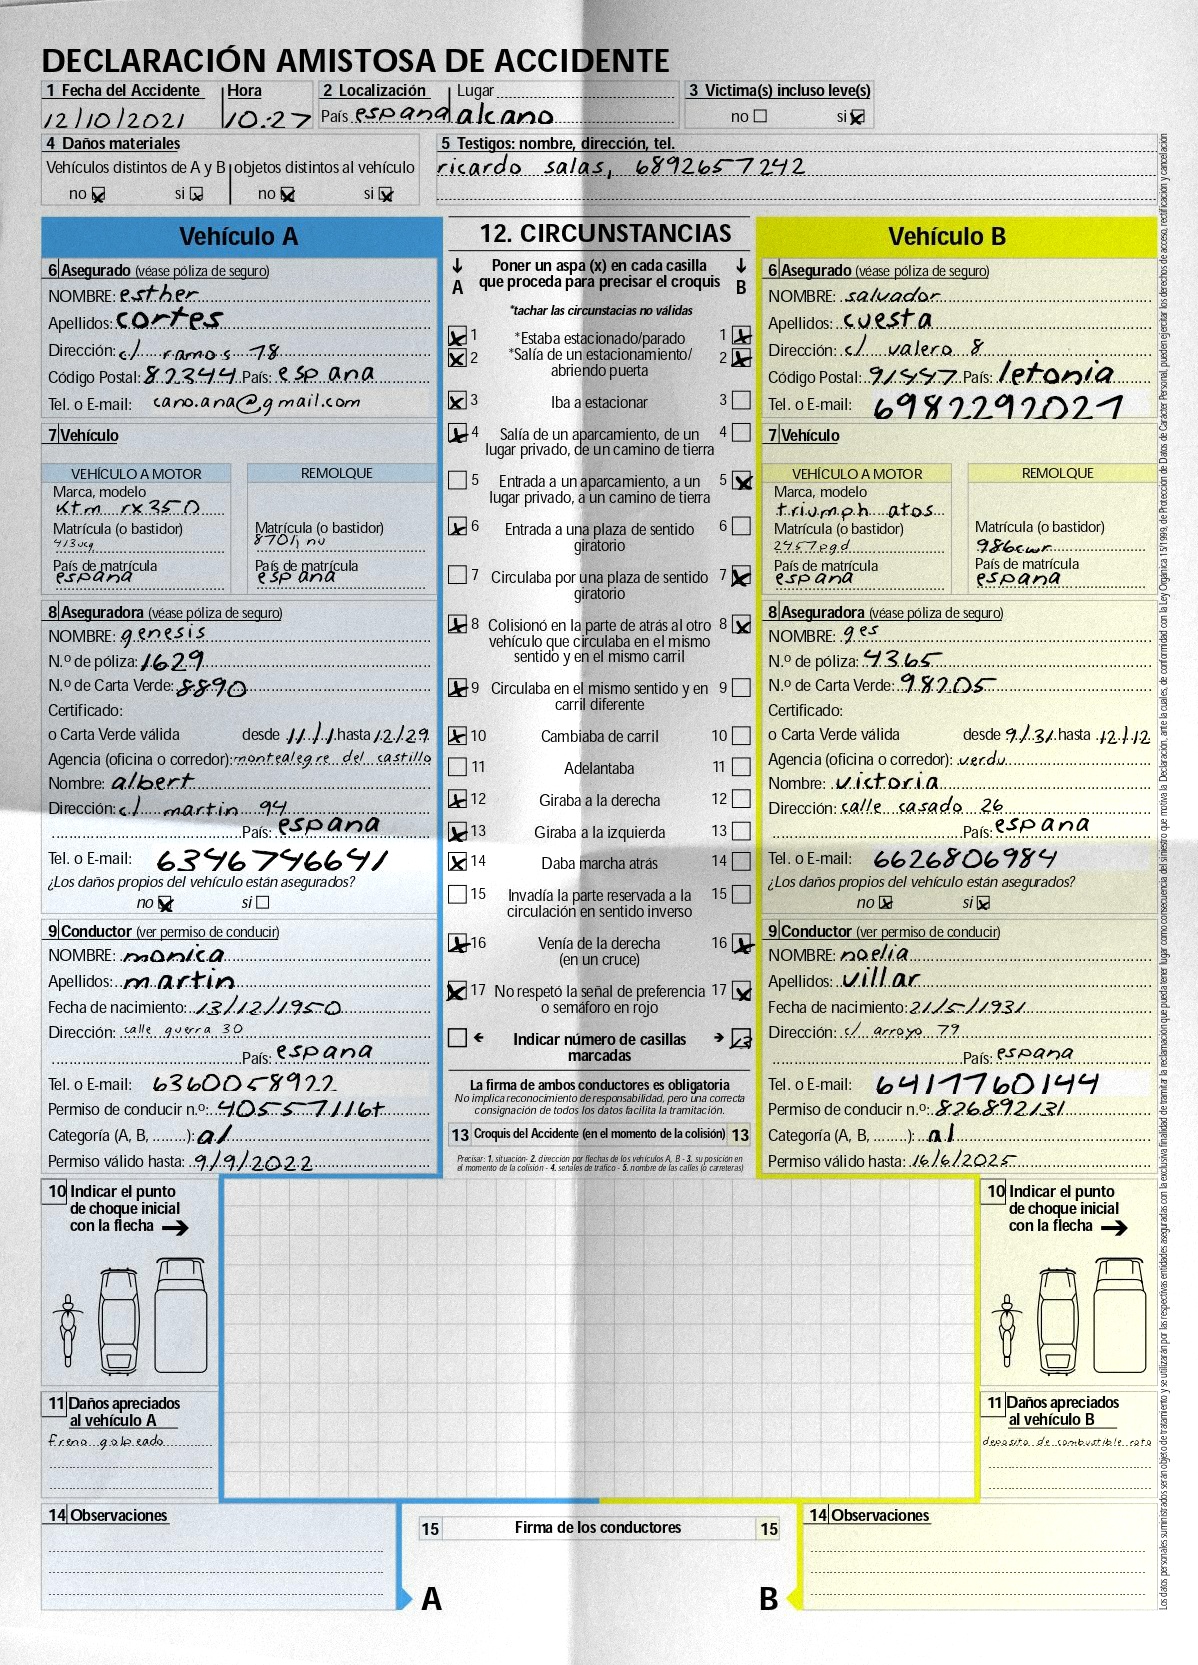 DECLARACIÓN AMISTOSA DE ACCIDENTE
1 Fecha del Accidente Hora 2 Localización Lugar 3 Victima(s) incluso leve(s)
12/10/2021 10:27 País espana alcano no si
4 Daños materiales 5 Testigos: nombre, dirección, tel.
Vehículos distintos de A y B objetos distintos al vehículo ricardo salas, 6892657242
no si no si
Vehículo A
6 Asegurado (véase póliza de seguro)
NOMBRE: esther
Apellidos: cortes
Dirección: c/ ramos 78
Código Postal: 82344 País: espana
Tel. o E-mail: cano.ana@gmail.com
7 Vehículo
VEHÍCULO A MOTOR REMOLQUE
Marca, modelo
ktm rx350
Matrícula (o bastidor) Matrícula (o bastidor)
País de matrícula País de matrícula
espana espana
8 Aseguradora (véase póliza de seguro)
NOMBRE: genesis
N.º de póliza: 1629
N.º de Carta Verde: 8890
Certificado:
o Carta Verde válida desde 11/1 hasta 12/29
Agencia (oficina o corredor): montealegre del castillo
Nombre: albert
Dirección: c/ martin 94
País: espana
Tel. o E-mail: 6346746641
¿Los daños propios del vehículo están asegurados?
no si
9 Conductor (ver permiso de conducir)
NOMBRE: monica
Apellidos: martin
Fecha de nacimiento: 13/12/1950
Dirección: calle guerra 30
País: espana
Tel. o E-mail: 6360058922
Permiso de conducir n.º: 40557116t
Categoría (A, B, ........): a1
Permiso válido hasta: 9/9/2022
12. CIRCUNSTANCIAS
A Poner un aspa (x) en cada casilla que proceda para precisar el croquis B
*tachar las circunstacias no válidas
1 *Estaba estacionado/parado 1
2 *Salía de un estacionamiento/ 2
abriendo puerta
3 Iba a estacionar 3
4 Salía de un aparcamiento, de un 4
lugar privado, de un camino de tierra
5 Entrada a un aparcamiento, a un 5
lugar privado, a un camino de tierra
6 Entrada a una plaza de sentido 6
giratorio
7 Circulaba por una plaza de sentido 7
giratorio
8 Colisionó en la parte de atrás al otro 8
vehículo que circulaba en el mismo
sentido y en el mismo carril
9 Circulaba en el mismo sentido y en 9
carril diferente
10 Cambiaba de carril 10
11 Adelantaba 11
12 Giraba a la derecha 12
13 Giraba a la izquierda 13
14 Daba marcha atrás 14
15 Invadía la parte reservada a la 15
circulación en sentido inverso
16 Venía de la derecha 16
(en un cruce)
17 No respetó la señal de preferencia 17
o semáforo en rojo
Indicar número de casillas 13
marcadas
La firma de ambos conductores es obligatoria
No implica reconocimiento de responsabilidad, pero una correcta
consignación de todos los datos facilita la tramitación.
13 Croquis del Accidente (en el momento de la colisión) 13
Precisar: 1. situación- 2. dirección por flechas de los vehículos A, B - 3. su posición en
el momento de la colisión - 4. señales de tráfico - 5. nombre de las calles (o carreteras)
Vehículo B
6 Asegurado (véase póliza de seguro)
NOMBRE: salvador
Apellidos: cuesta
Dirección: c/ valero 8
Código Postal: País: letonia
Tel. o E-mail: 6982292021
7 Vehículo
VEHÍCULO A MOTOR REMOLQUE
Marca, modelo
triumph atos
Matrícula (o bastidor) Matrícula (o bastidor)
2457pgd 986cwr
País de matrícula País de matrícula
espana espana
8 Aseguradora (véase póliza de seguro)
NOMBRE: ges
N.º de póliza: 4365
N.º de Carta Verde: 98205
Certificado:
o Carta Verde válida desde 9/31 hasta 12/12
Agencia (oficina o corredor): verdu
Nombre: victoria
Dirección: calle casado 26
País: espana
Tel. o E-mail: 6626806984
¿Los daños propios del vehículo están asegurados?
no si
9 Conductor (ver permiso de conducir)
NOMBRE: noelia
Apellidos: villar
Fecha de nacimiento: 21/5/1931
Dirección: c/ arroyo 79
País: espana
Tel. o E-mail: 6417760144
Permiso de conducir n.º: 82689213l
Categoría (A, B, ........): a1
Permiso válido hasta: 16/6/2025
10 Indicar el punto
de choque inicial
con la flecha
11 Daños apreciados
al vehículo A
freno golpeado
10 Indicar el punto
de choque inicial
con la flecha
11 Daños apreciados
al vehículo B
deposito de combustible roto
14 Observaciones
15 Firma de los conductores 15
A B
14 Observaciones
Los datos personales suministrados seran objeto de tratamiento y se utilizarán por las respectivas entidades aseguradas con la exclusiva finalidad de tramitar la reclamación que pueda tener lugar como consecuencia del siniestro que motiva la Declaración, ante la cuales, de conformidad con la Ley Orgánica 15/1999, de Protección de Datos de Carácter Personal, pueden ejercitar los derechos de acceso, rectificación y cancelación